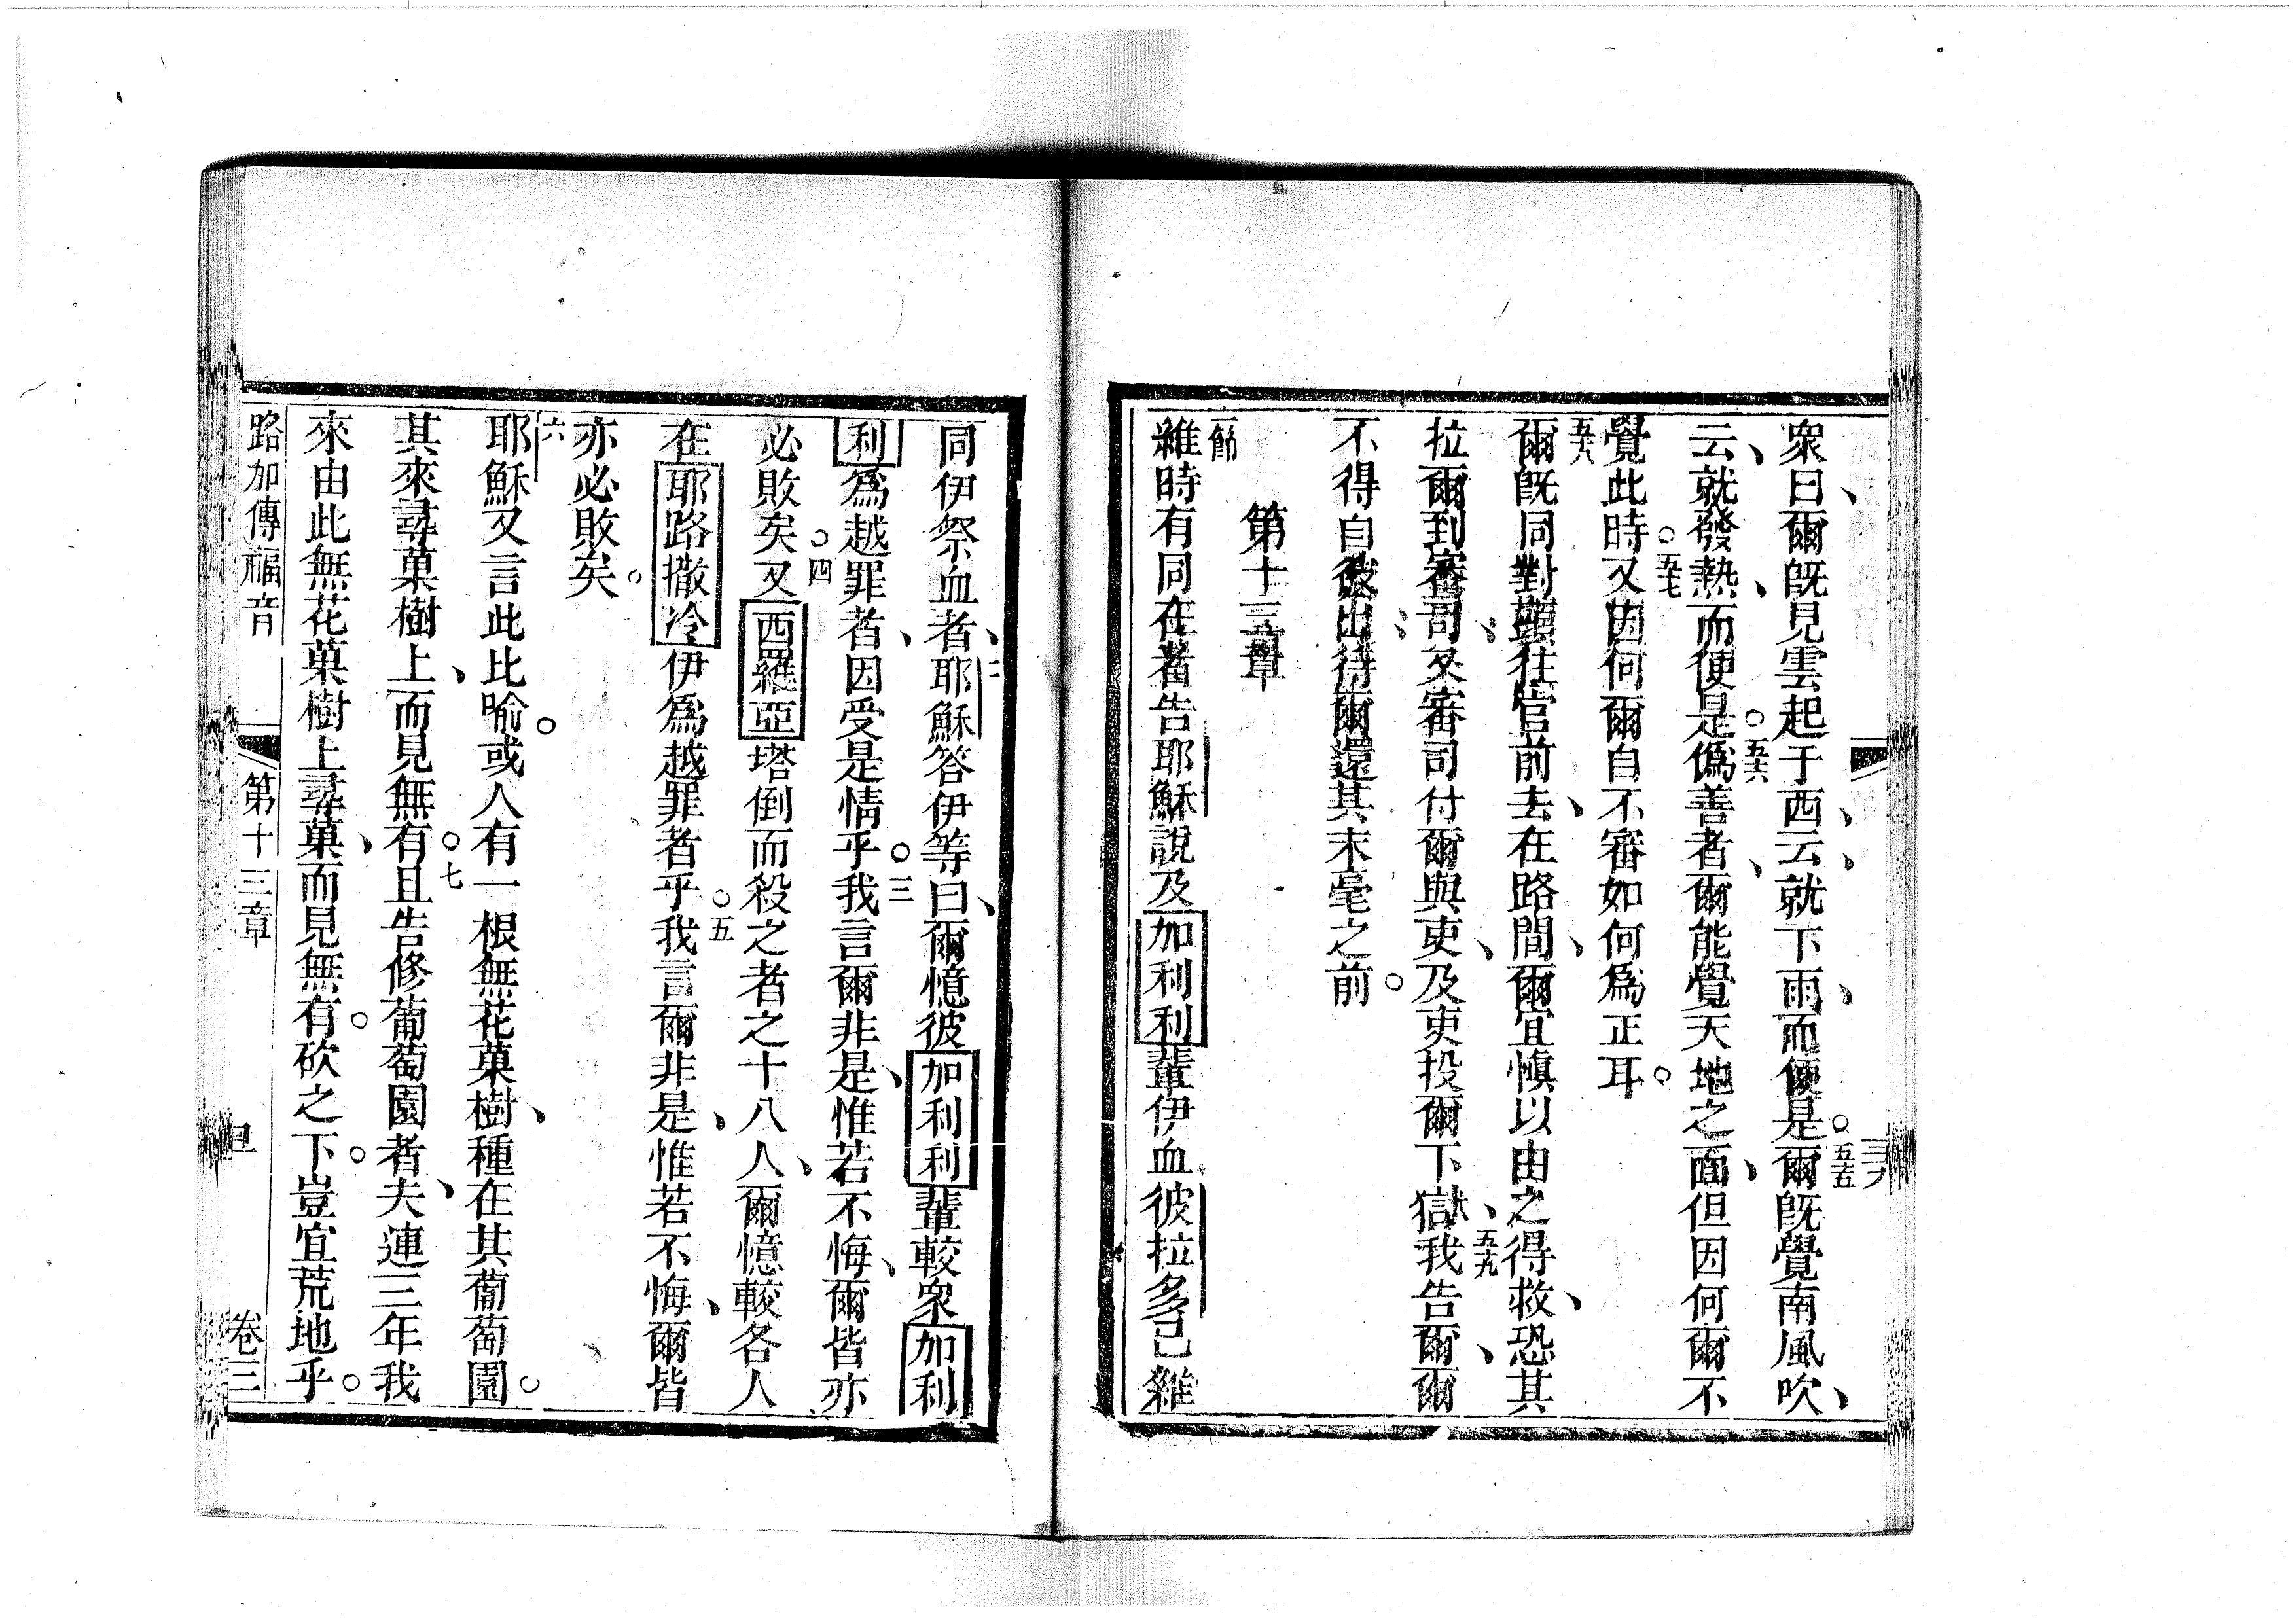 衆曰、爾既見雲起于西、云、就下雨、而便是。五五爾既覺南風吹、
云、就發熱、而便是。五六僞善者、爾能覺天地之面、但因何爾不
覺此時。五七又因何爾自不審如何爲正耳。
五八爾既同對頭往官前去、在路間、爾宜愼以由之得救、恐其
拉爾到審司、又審司付爾與吏、及吏投爾下獄、五九我告爾、爾
不得自彼出、待爾還其末毫之前。
第十三章
一節雖時有同在者告耶穌說及加利利輩伊血彼拉多己雜
同伊祭血者、二耶穌答伊等曰、爾憶彼加利利輩較衆加利
利爲越罪者、因受是情乎。三我言爾非是、惟若不悔、爾皆亦
必敗矣。四又西羅亞塔倒而殺之者之十八人、爾憶較各人
在耶路撒冷伊爲越罪者乎。五我言爾非是、惟若不悔、爾皆
亦必敗矣。
六耶穌又言此比喻。或人有一根無花菓樹、種在其葡萄園。
其來尋菓樹上、而見無有。七且告修葡萄園者、夫連三年我
來由此無花菓樹上尋菓、而見無有。砍之下。豈宜荒地乎。
路加傳福音 第十三章 卷三